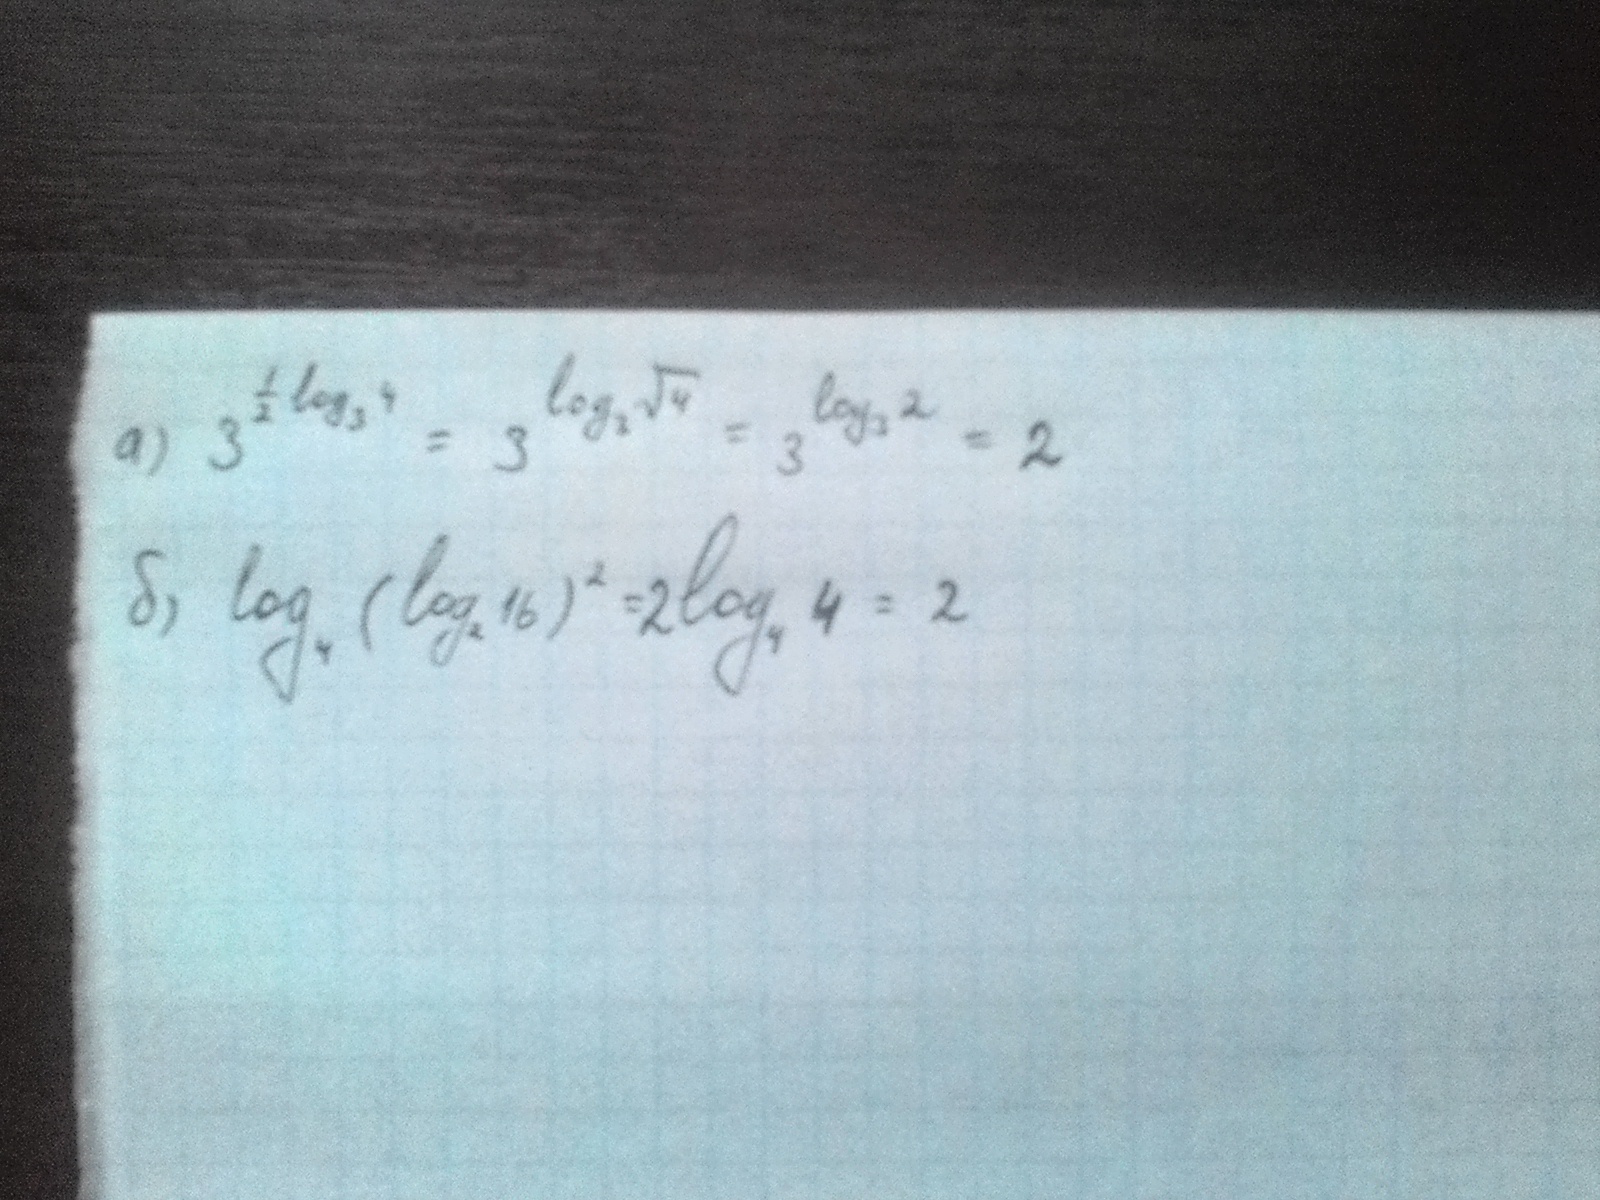 а) 3^{\frac{1}{2} log_3 4} = 3^{log_3 √4} = 3^{log_3 2} = 2
б) log_4 (log_2 16)^2 = 2 log_4 4 = 2